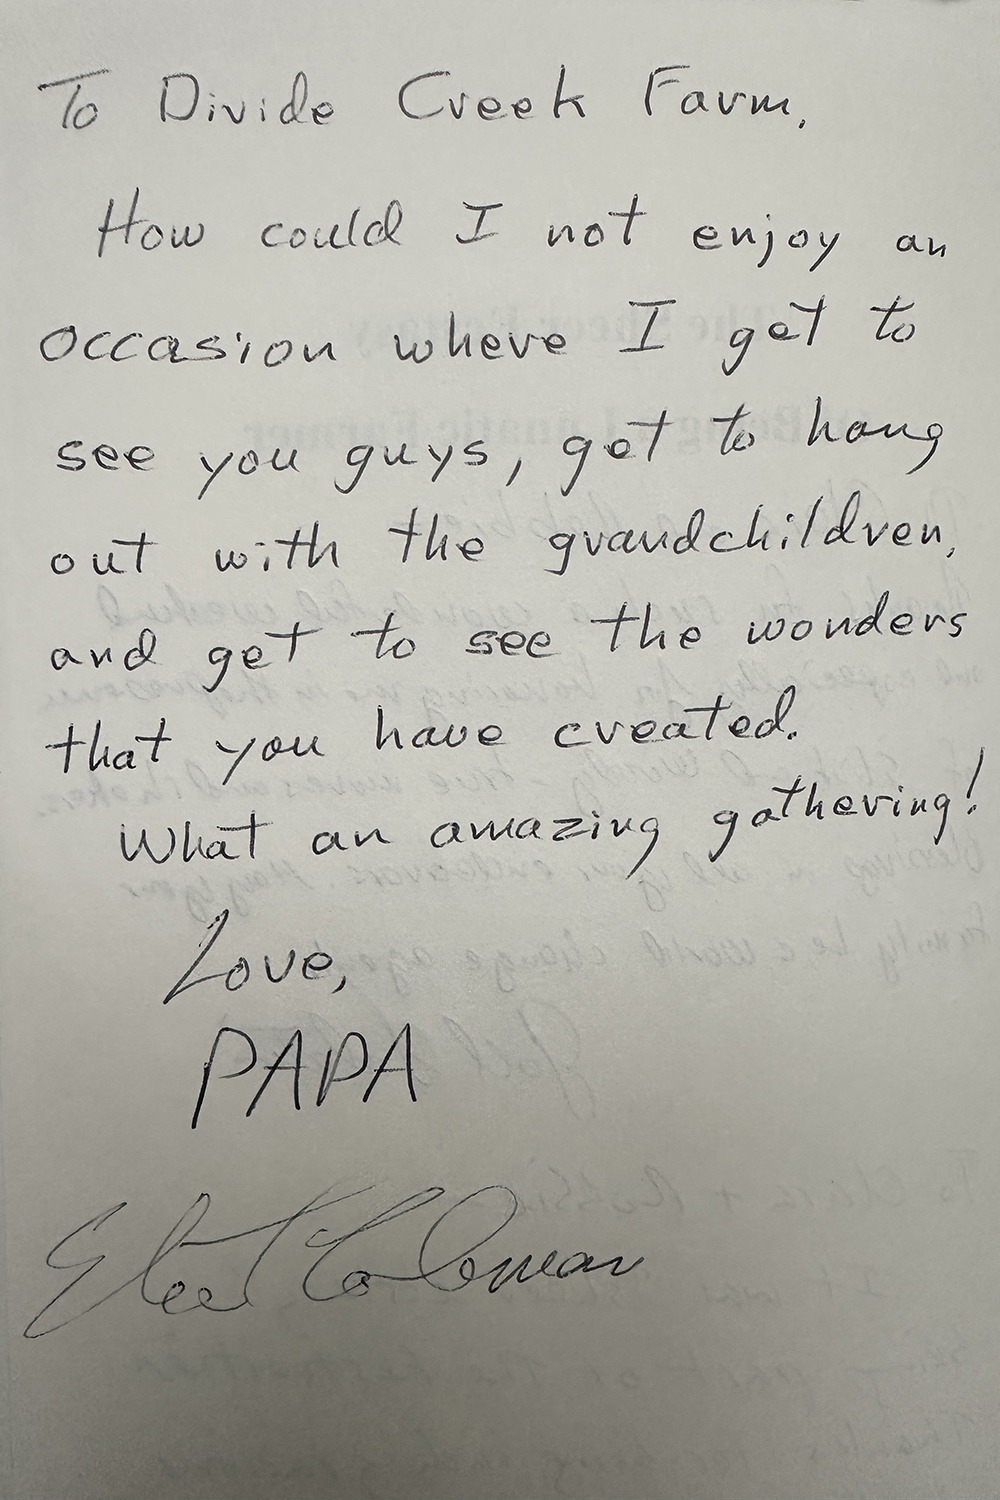 To Divide Creek Farm,
How could I not enjoy an
occasion where I get to
see you guys, get to hang
out with the grandchildren,
and get to see the wonders
that you have created.
What an amazing gathering!
Love,
PAPA
Eliot Coleman